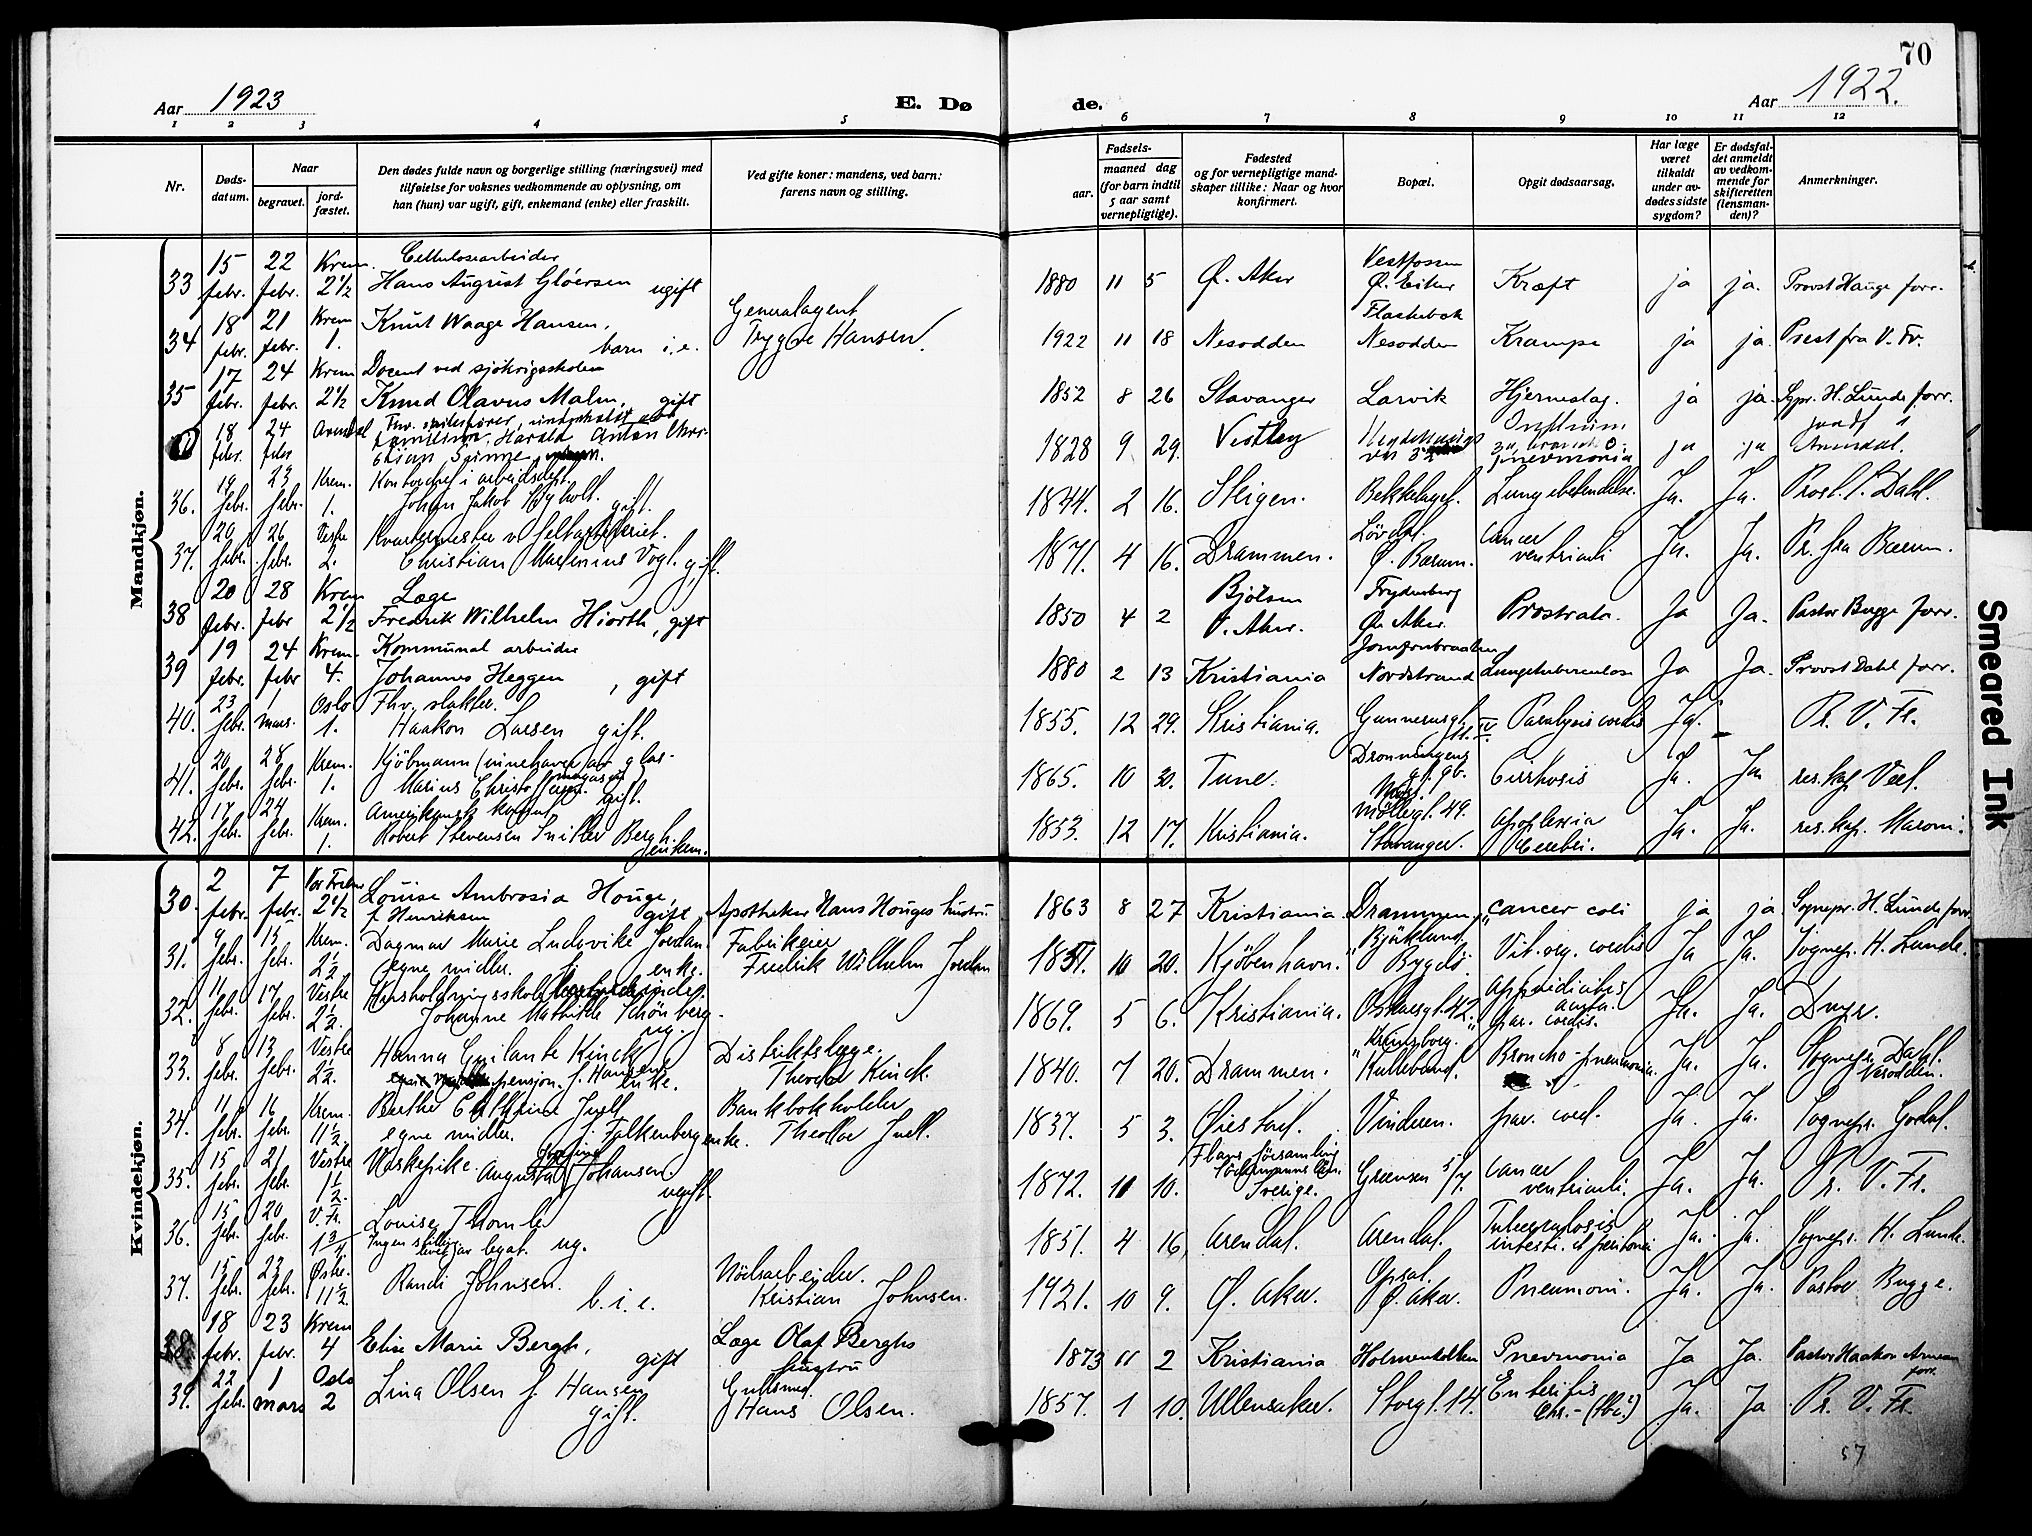 70
Aar 1923
E. Dø
de.
Aar 1922.
1 2 3 4 5 6 7 8 9 10 11 12
Nr.
Døds-
datum.
Naar
begravet.
jord-
fæstet.
Den dødes fulde navn og borgerlige stilling (næringsvei) med
tilføielse for voksnes vedkommende av oplysning, om
han (hun) var ugift, gift, enkemand (enke) eller fraskilt.
Ved gifte koner: mandens, ved barn:
farens navn og stilling.
Fødsels-
aar.
maaned dag
(for barn indtil
5 aar samt
vernepligtige).
Fødested
og for vernepligtige mand-
skaper tillike: Naar og hvor
konfirmert.
Bopæl.
Opgit dødsaarsag.
Har læge
været
tilkaldt
under av-
dødes sidste
sygdom?
Er dødsfal-
det anmeldt
av vedkom-
mende for
skifteretten
(lensman-
den)?
Anmerkninger.
Mandkjøn.
33 15 febr. 22 febr. Krem. 2 1/2 Cellulosearbeider
Hans August Gløersen ugift 1880 11 5 Ø. Aker Vestfossen Ø. Eiker Kræft ja ja. Provst Hauge forr.
34 18 febr. 21 febr. Krem 1. Knut Waage Hansen,
barn i.e. Generalagent
Trygve Hansen. 1922 11 18 Nesodden Flaskebek Nesodden Krampe ja ja. Prest fra V. Fr.
35 17 febr. 24 febr. Krem 2 1/2 Docent ved sjøkrigsskolen
Knud Olavus Malm, gift 1852 8 26 Stavanger Larvik Hjerneslag. ja ja. Sgpr. H. Lunde forr.
18 febr. 24 febr Arendal Harald Anton 1828 9 29. Vestby pnevmonia ja ja jordf. i Arendal.
36. 19 febr. 23 febr. Krem. 1. Kontorchef i arbeidsdept.
Johan Jakob gift. 1844. 2 16. Steigen. Bekkelaget. Lungebetendelse. Ja. Ja. Prost P. Dahl.
37. 20 febr. 26 febr. Vestre 2. Kvartermester v. feltartilleriet.
Christian Vogt. gift. 1871. 4 16. Drammen. Ø. Bærum. cancer ventriculi Ja. Ja. Pr. fra Bærum.
38 20 febr. 28 febr Krem 2 1/2 Læge
Fredrik Wilhelm Hiorth, gift 1850 4 2 Bjølsen V. Aker. Frydenberg Ø. Aker. Prostrata. Ja Ja. Pastor Bugge forr.
39 19 febr. 24 febr Krem. 4. Kommunal arbeider
Johannes Heggen, gift 1880 2 13 Kristiania Nordstrand Lungetuberculose Ja Ja. Provst Dahl forr.
40. 23 febr. 1 mars. Oslo 1. Fhv. slakter.
Haakon Larsen gift. 1855. 12 29. Kristiania. Gunnerusgt. Paralysis cordis Ja. – Pr. V. Fr.
41. 20 febr. 28 febr. Krem. 1. Kjöbmann (innehaver av glas-
magasin)
Marius Christoffersen. gift. 1865. 10 30. Tune. Dronningens gt. Cirrhosis Ja. Ja res. kap. Veel.
42. 17 febr. 24 febr. Krem. 1. Amerikansk konsul
Robert Stevensen Bergh. enkem. 1853. 12 17. Kristiania. Möllergt. 49. Stavanger. Apoplexia Cerebri. Ja. Ja. res. kap. Maroni.
Kvindekjøn.
30. 2 febr. 7 febr. Vor Frelser 2 1/2 Louise Ambrosia Houge,
f. Henriksen gift Apotheker Hans Houges hustru 1863 8 27 Kristiania Drammen cancer coli ja ja Sognepr. H. Lunde forr
31. 9 febr. 15 febr. Krem. 2 1/2 Dagmar Marie Ludovike Jordan.
egne midler. enke. Fabrikeier
Fredrik Wilhelm Jordan 1851. 10 20. Kjöbenhavn. Bygdö. Vit. org. cordis Ja Ja. Sognepr. H. Lunde.
32. 11 febr. 17 febr. Vestre 2 1/2. Johanne Mathilde Schönberg.
ug. 1869. 5 6. Kristiania. Oskarsgt. 42. appendicitis acuta. par. cordis. Ja. Ja.
33. 8 febr. 13 febr. Vestre 2 1/2. Hanna Kinck
pensjon. f. Hansen enke. Distriktslæge.
Theodor Kinck. 1840. 7 20. Drammen. Broncho-pneumonia. Ja. Ja. Sognepr. Dahl.
34. 11 febr. 16 febr. Krem. 11 1/2. Berthe Cathrine Juell
egne midler. f. Falkenberg enke. Bankbokholder
Theodor Juell. 1837. 5 3. Øiestad. Vinderen. par. cord. Ja. Ja. Sognepr. Godal.
35. 15 febr. 21 febr. Vestre 1 1/2. Vaskepike. Augusta Josefine Johansen.
ugift. 1872. 11 10. Sverige. Grænsen 5/7. cancer ventriculi. Ja. Ja. Pr. V. Fr.
36. 15 febr. 20 febr. V. Fr. 1 3/4. Louise Thomle
Ingen stilling
levet av legat. ug. 1851. 4 16, Arendal. Arendal. Tuberculosis intesti. et peritonei Ja. Ja. Sognepr. H. Lunde.
37. 15 febr. 23 febr. Østre. 11 1/2. Randi Johnsen.
b. i. e. Nödsarbeider.
Kristian Johnsen. 1921. 10 9. Ø. Aker. Opsal. Ø. Aker. Pneumoni. Ja. Ja. Pastor Bugge.
38. 18 febr. 23 febr. Krem 4 Elise Marie Bergh, gift Læge Olaf Berghs
hustru 1873 11 2 Kristiania Holmenkollen Pnevmonia Ja Ja. Pastor Haakon forr.
39. 22 febr. 1 mars Oslo 2 Lina Olsen f. Hansen
gift. Gulsmed.
Hans Olsen. 1857. 1 10. Ullensaker. Storgt. 14. Enteritis chr. – (tbc.) Ja. Ja Pr. V. Fr.
57
Smeared Ink